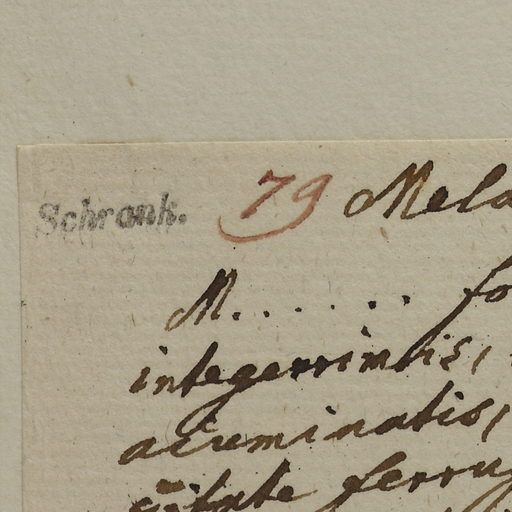 Schrank. 79 Mela
M. . . . . . . fo
integerrimis,
acuminatis,
ferrug